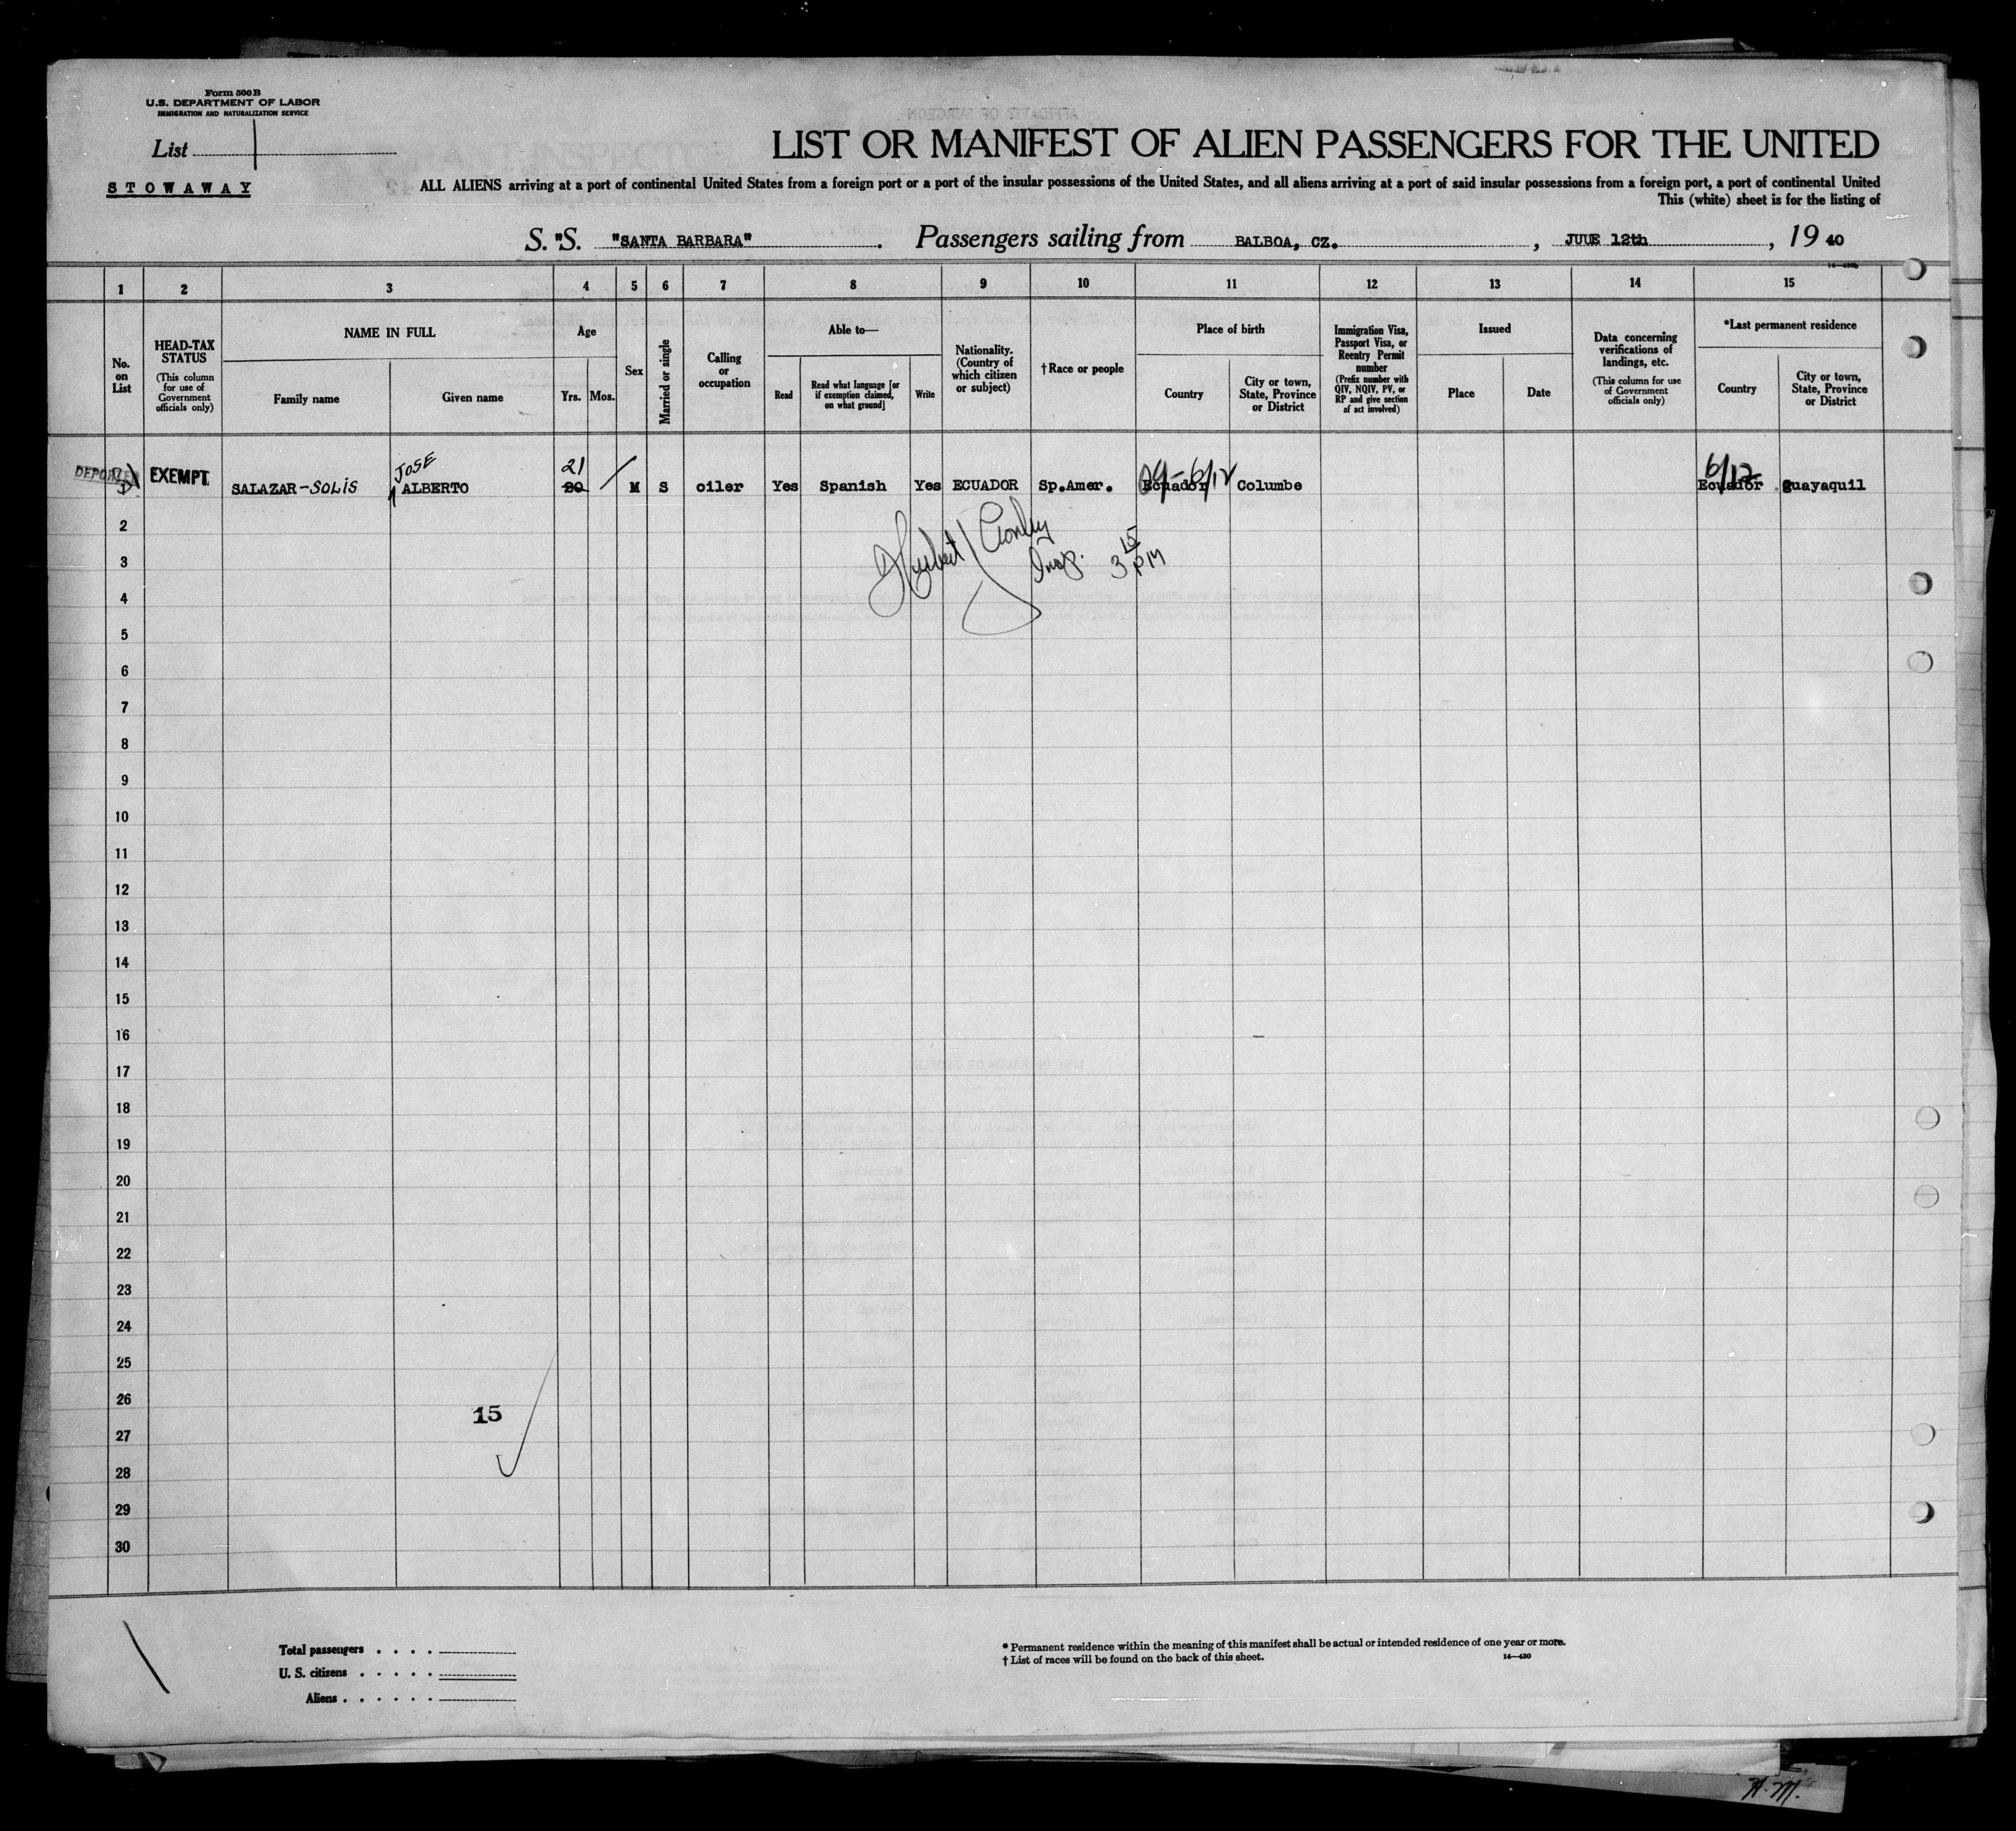 Form 500 B
U.S. DEPARTMENT OF LABOR
IMMIGRATION AND NATURALIZATION SERVICE
List 1
STOWAWAY
LIST OR MANIFEST OF ALIEN PASSENGERS FOR THE UNITED
ALL ALIENS arriving at a port of continental United States from a foreign port or a port of the insular possessions of the United States, and all aliens arriving at a port of said insular possessions from a foreign port, a port of continental United
This (white) sheet is for the listing of
S. "S. "SANTA BARBARA" . Passengers sailing from BALBOA, CZ. , JUUE 12th , 19 40
1 2 3 4 5 6 7 8 9 10 11 12 13 14 15
No. on List
HEAD-TAX STATUS
(This column for use of Government officials only)
NAME IN FULL
Family name
Given name
Age
Yrs.
Mos.
Sex
Married or single
Calling or occupation
Able to—
Read
Read what language [or if exemption claimed, on what ground]
Write
Nationality. (Country of which citizen or subject)
†Race or people
Place of birth
Country
City or town, State, Province or District
Immigration Visa, Passport Visa, or Reentry Permit number
(Prefix number with QIV, NQIV, PV, or RP and give section of act involved)
Issued
Place
Date
Data concerning verifications of landings, etc.
(This column for use of Government officials only)
*Last permanent residence
Country
City or town, State, Province or District
JOSE 21 6/12 6/12
DEPORTED 1 EXEMPT SALAZAR-SOLIS ALBERTO 20 M S oiler Yes Spanish Yes ECUADOR Sp.Amer. Ecuador Columbe Ecuador guayaquil
2
Insp. 3 15 PM
3
4
5
6
7
8
9
10
11
12
13
14
15
16
17
18
19
20
21
22
23
24
25
26
15
27
28
29
30
Total passengers . . . .
U. S. citizens . . . . .
Aliens . . . . . .
* Permanent residence within the meaning of this manifest shall be actual or intended residence of one year or more.
† List of races will be found on the back of this sheet.
14—430
H.M.